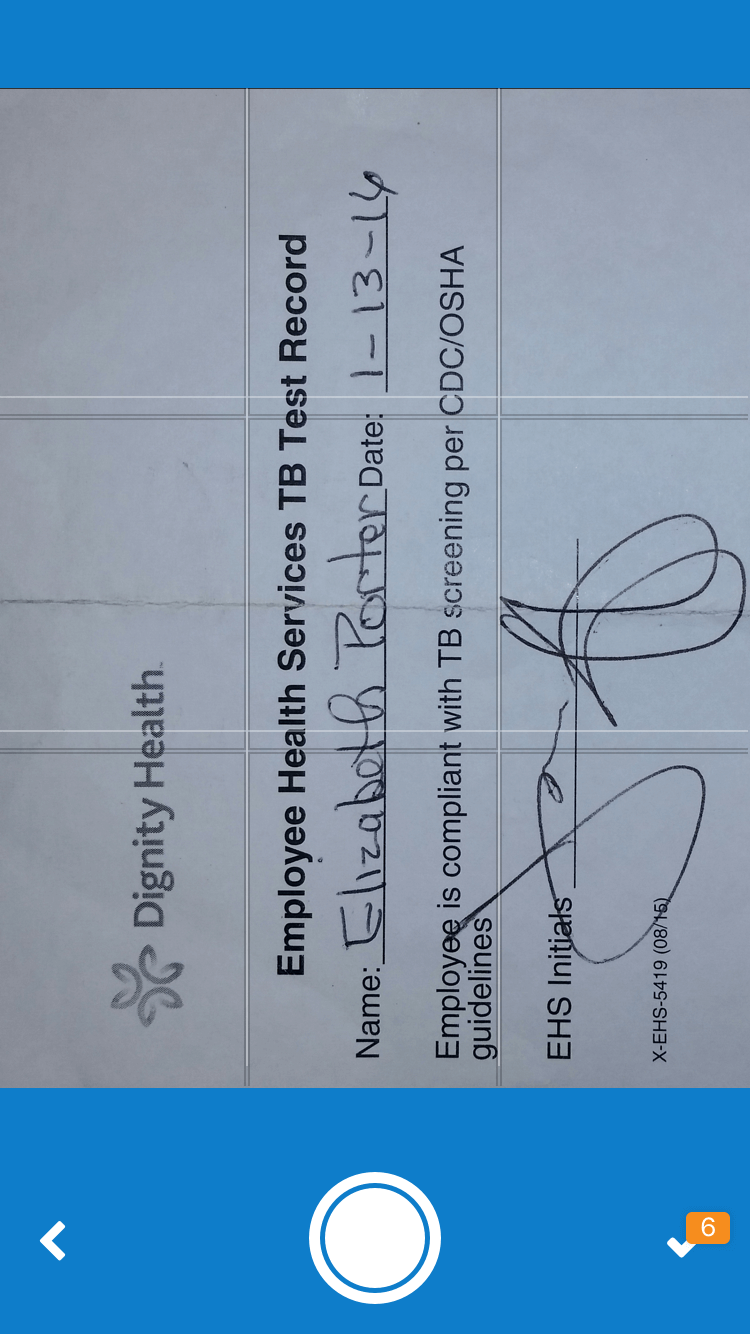 Dignity Health
Employee Health Services TB Test Record
Name: Elizabeth Porter Date: 1-13-16
Employee is compliant with TB screening per CDC/OSHA
guidelines
EHS Initials
X-EHS-5419 (08/15)
6